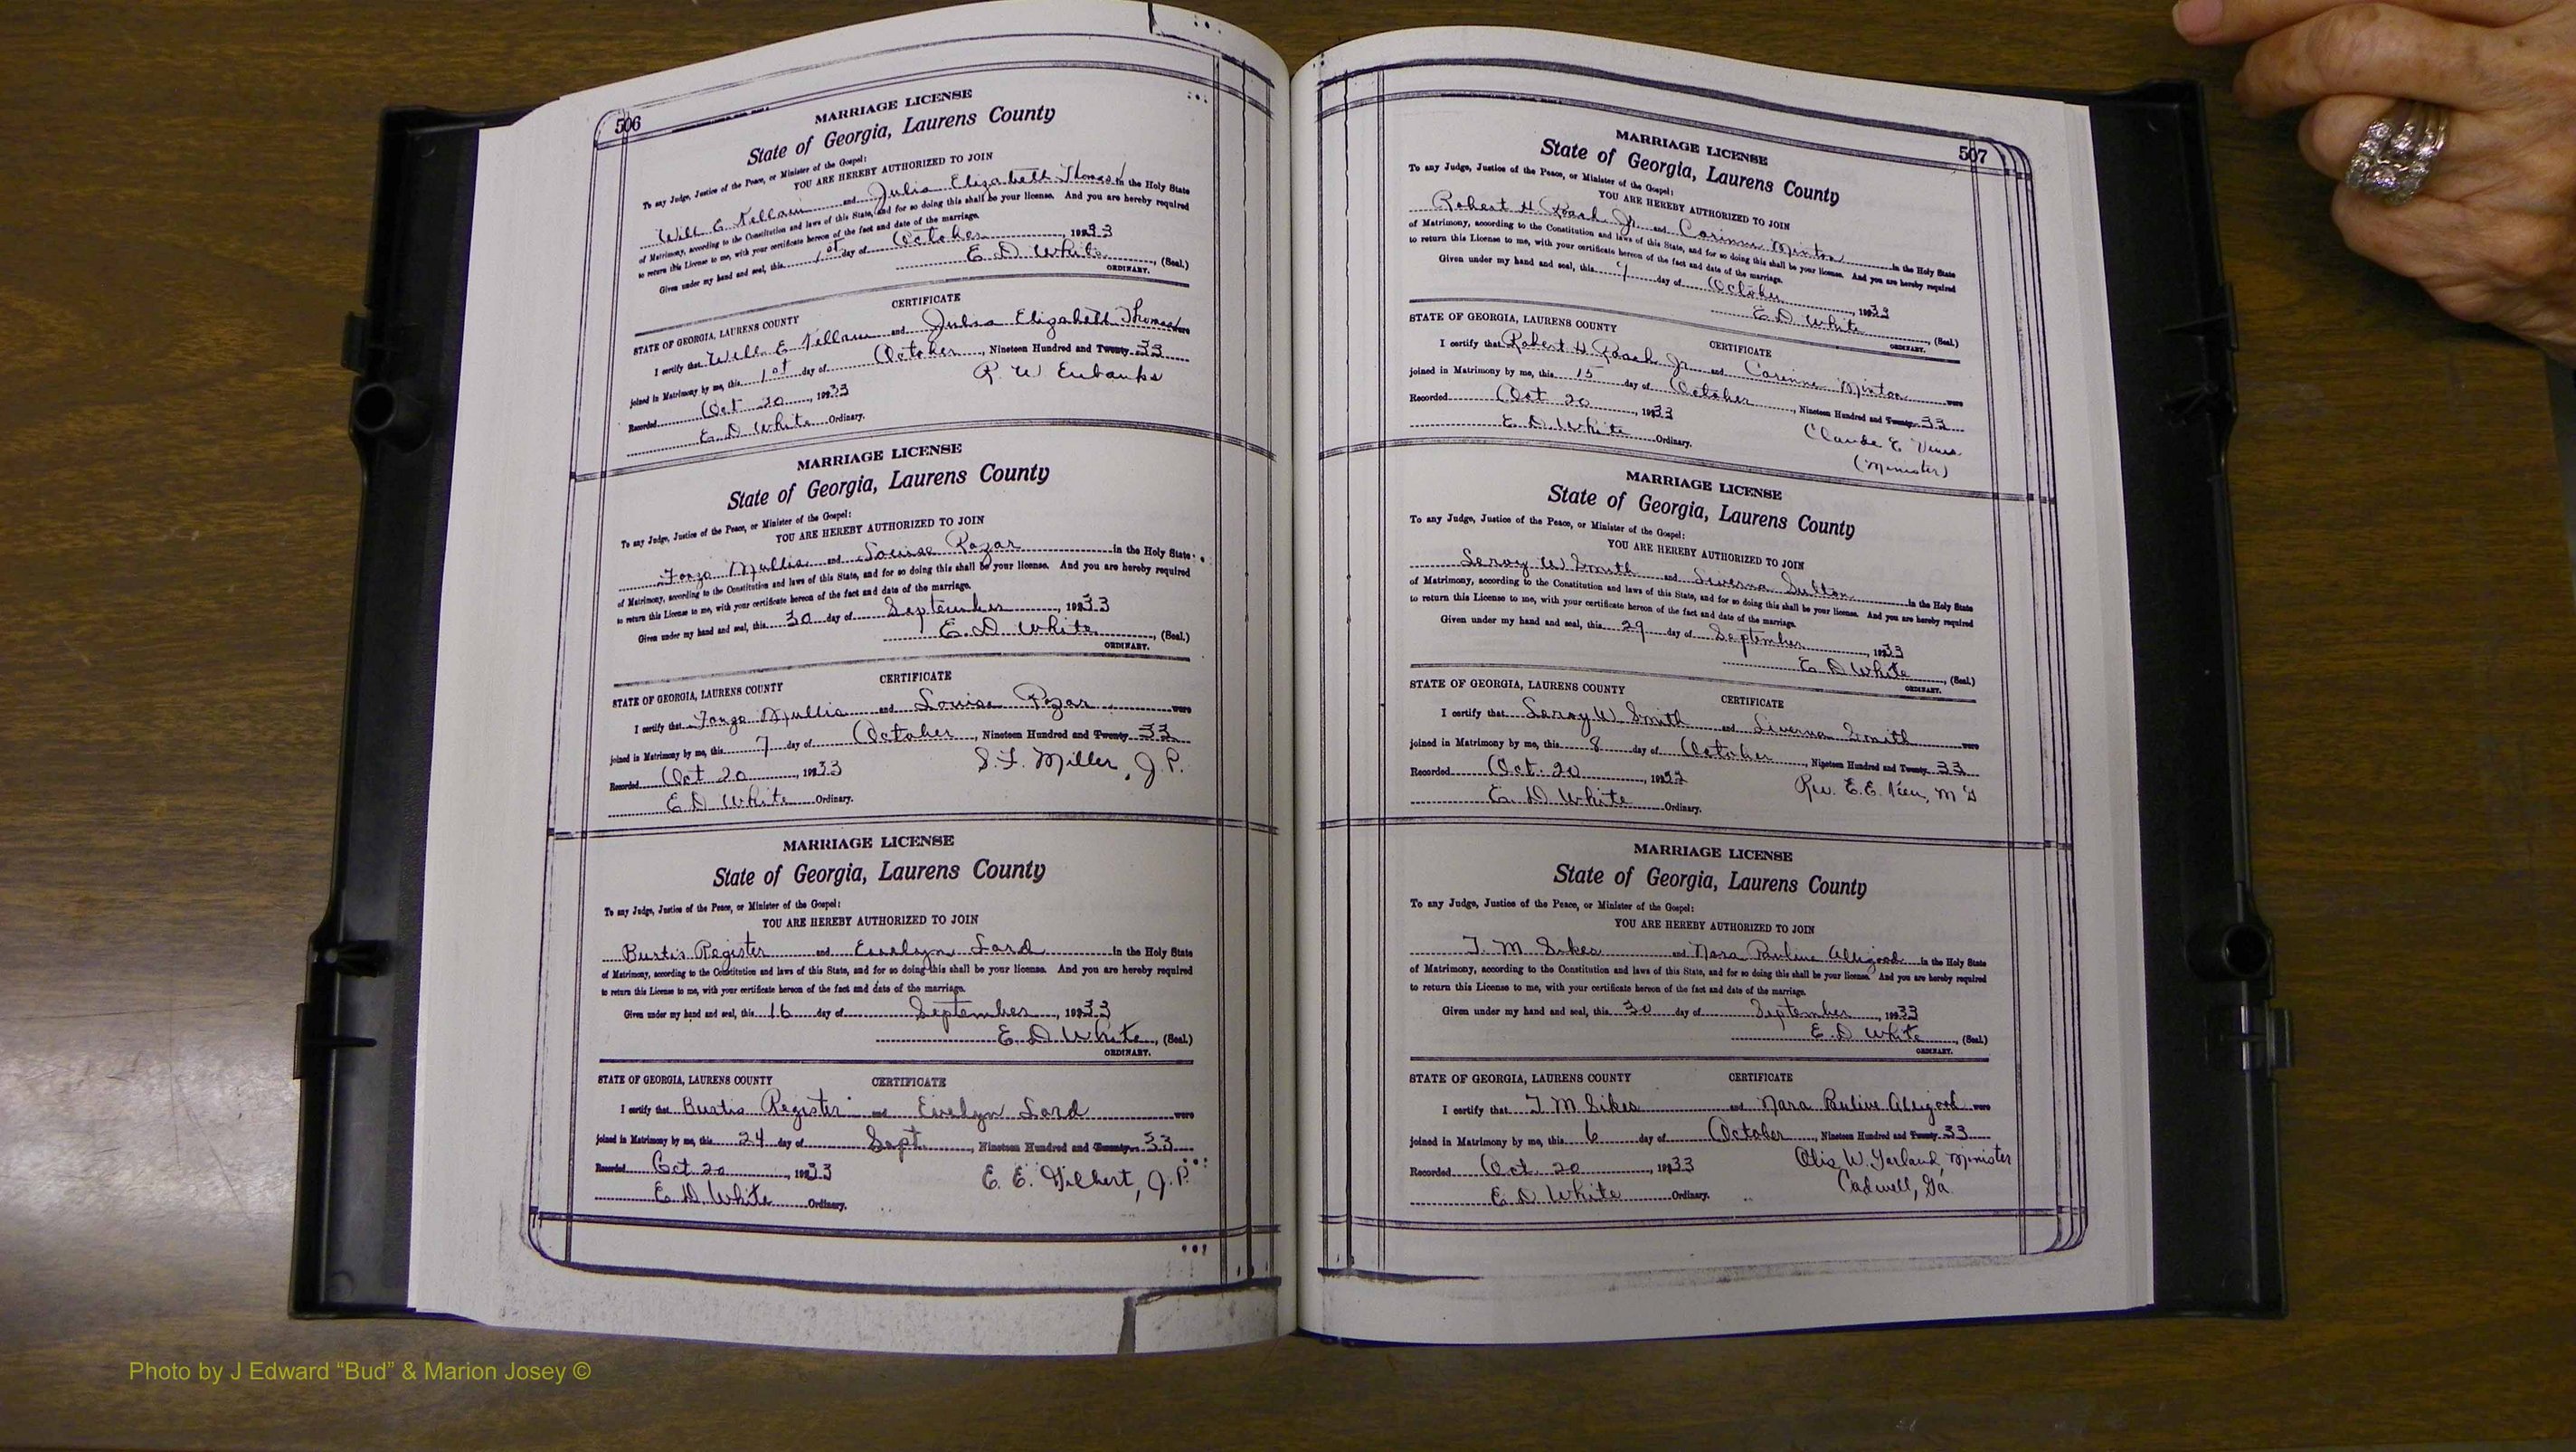 506
MARRIAGE LICENSE
State of Georgia, Laurens County
To any Judge, Justice of the Peace, or Minister of the Gospel:
YOU ARE HEREBY AUTHORIZED TO JOIN
Will E and Julia Elizabeth Thomas in the Holy State
of Matrimony, according to the Constitution and laws of this State, and for so doing this shall be your license. And you are hereby required
to return this License to me, with your certificate hereon of the fact and date of the marriage.
Given under my hand and seal, this 1st day of October, 1933
E. D. White, (Seal.)
ORDINARY.
CERTIFICATE
STATE OF GEORGIA, LAURENS COUNTY
I certify that Will E and Julia Elizabeth Thomas were
joined in Matrimony by me, this 1st day of October, Nineteen Hundred and Twenty 33
Recorded Oct 20, 1933
R. W Eubanks
E. D. White Ordinary.
MARRIAGE LICENSE
State of Georgia, Laurens County
To any Judge, Justice of the Peace, or Minister of the Gospel:
YOU ARE HEREBY AUTHORIZED TO JOIN
Mullis and Louise in the Holy State
of Matrimony, according to the Constitution and laws of this State, and for so doing this shall be your license. And you are hereby required
to return this License to me, with your certificate hereon of the fact and date of the marriage.
Given under my hand and seal, this 30 day of September, 1933
E. D White, (Seal.)
ORDINARY.
CERTIFICATE
STATE OF GEORGIA, LAURENS COUNTY
I certify that Mullis and Louise were
joined in Matrimony by me, this 7 day of October, Nineteen Hundred and Twenty 33
Recorded Oct 20, 1933
S. F. Miller, J. P.
E D White Ordinary.
MARRIAGE LICENSE
State of Georgia, Laurens County
To any Judge, Justice of the Peace, or Minister of the Gospel:
YOU ARE HEREBY AUTHORIZED TO JOIN
Burtis Register and Evelyn Lord in the Holy State
of Matrimony, according to the Constitution and laws of this State, and for so doing this shall be your license. And you are hereby required
to return this License to me, with your certificate hereon of the fact and date of the marriage.
Given under my hand and seal, this 16 day of September, 1933
E. D White, (Seal.)
ORDINARY.
STATE OF GEORGIA, LAURENS COUNTY CERTIFICATE
I certify that Burtis Register and Evelyn Lord were
joined in Matrimony by me, this 24 day of Sept., Nineteen Hundred and Twenty 33
Recorded Oct 20, 1933
E. E. Gilbert, J. P.
E. D. White Ordinary.
507
MARRIAGE LICENSE
State of Georgia, Laurens County
To any Judge, Justice of the Peace, or Minister of the Gospel:
YOU ARE HEREBY AUTHORIZED TO JOIN
Robert H Roach Jr. and Corinne Minton in the Holy State
of Matrimony, according to the Constitution and laws of this State, and for so doing this shall be your license. And you are hereby required
to return this License to me, with your certificate hereon of the fact and date of the marriage.
Given under my hand and seal, this 7 day of October, 1933
E. D White, (Seal.)
ORDINARY.
STATE OF GEORGIA, LAURENS COUNTY CERTIFICATE
I certify that Robert H. Roach Jr and Corinne Minton were
joined in Matrimony by me, this 15 day of October, Nineteen Hundred and Twenty 33
Recorded Oct 20, 1933
Claude E
E. D White Ordinary.
(Minister)
MARRIAGE LICENSE
State of Georgia, Laurens County
To any Judge, Justice of the Peace, or Minister of the Gospel:
YOU ARE HEREBY AUTHORIZED TO JOIN
Leroy W Smith and Liverna in the Holy State
of Matrimony, according to the Constitution and laws of this State, and for so doing this shall be your license. And you are hereby required
to return this License to me, with your certificate hereon of the fact and date of the marriage.
Given under my hand and seal, this 29 day of September, 1933
E. D White, (Seal.)
ORDINARY.
STATE OF GEORGIA, LAURENS COUNTY CERTIFICATE
I certify that Leroy W. Smith and Liverna Smith were
joined in Matrimony by me, this 8 day of October, Nineteen Hundred and Twenty 33
Recorded Oct. 20
Rev. E. E. M G
E. D White Ordinary.
MARRIAGE LICENSE
State of Georgia, Laurens County
To any Judge, Justice of the Peace, or Minister of the Gospel:
YOU ARE HEREBY AUTHORIZED TO JOIN
T. M Sikes and Nara Pauline Alligood in the Holy State
of Matrimony, according to the Constitution and laws of this State, and for so doing this shall be your license. And you are hereby required
to return this License to me, with your certificate hereon of the fact and date of the marriage.
Given under my hand and seal, this 30 day of September, 1933
E. D White, (Seal.)
ORDINARY.
STATE OF GEORGIA, LAURENS COUNTY CERTIFICATE
I certify that T M Sikes and Nara Pauline Alligood were
joined in Matrimony by me, this 6 day of October, Nineteen Hundred and Twenty 33
Recorded Oct. 20, 1933
Otis W. Garland, Minister
E. D White Ordinary.
Cadwell, Ga.
Photo by J Edward “Bud” & Marion Josey ©